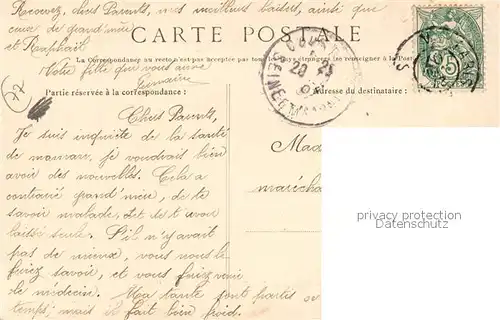 Recevez, chers Parents, mes meilleurs baisers, ainsi que
ceux de grand'mère
et Raphaël
CARTE POSTALE
La Correspondance au recto n'est pas acceptée par tous les pays étrangers
se renseigner à la Poste
Votre fille qui vous aime
Germaine
Partie réservée à la correspondance :
Adresse du destinataire :
77
Chers Parents,
Je suis inquiète de la santé
de maman, je voudrais bien
avoir des nouvelles. Cela a
contrarié grand'mère, de te
savoir malade, et de t'avoir
laissé seule. S'il n'y avait
pas de mieux, vous nous le
feriez savoir, et vous feriez venir
le médecin. Ma tante sont partis
temps; mais il fait bien froid.
Mad
maréchal
SEINE ET MARNE
privacy protection
Datenschutz